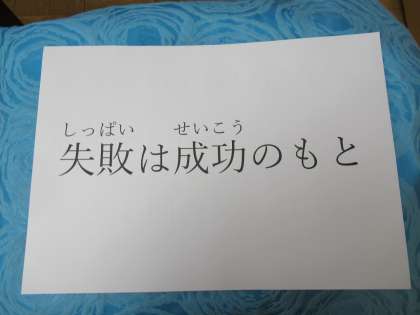 しっぱい せいこう
失敗は成功のもと